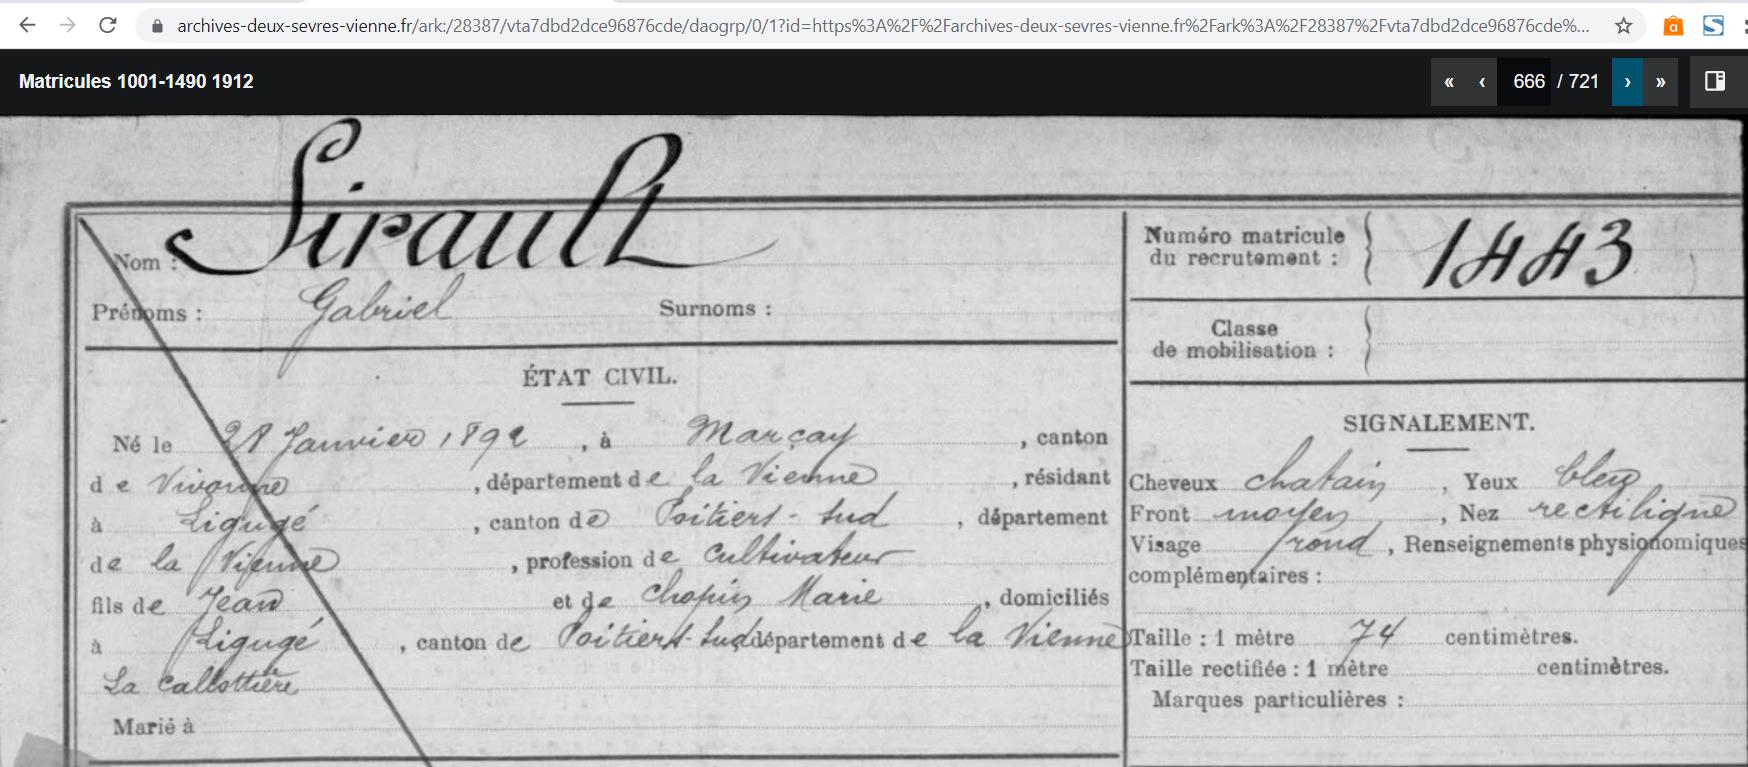 archives-deux-sevres-vienne.fr/ark:/28387/vta7dbd2dce96876cde/daogrp/0/1?id=https%3A%2F%2Farchives-deux-sevres-vienne.fr%2Fark%3A%2F28387%2Fvta7dbd2dce96876cde%...
Matricules 1001-1490 1912
« ‹ 666 / 721 › »
Nom : Sirault
Prénoms : Gabriel Surnoms :
ÉTAT CIVIL.
Né le 28 Janvier 1892, à Marçay, canton
de Vivonne, département de la Vienne, résidant
à Ligugé, canton de Poitiers-Sud, département
de la Vienne, profession de cultivateur
fils de Jean et de Chopin Marie, domiciliés
à Ligugé, canton de Poitiers-Sud département de la Vienne
La Callottière
Marié à
Numéro matricule
du recrutement : } 1443
Classe
de mobilisation :
SIGNALEMENT.
Cheveux chatain, Yeux bleu
Front moyen, Nez rectiligne
Visage rond, Renseignements physionomiques
complémentaires :
Taille : 1 mètre 74 centimètres.
Taille rectifiée : 1 mètre centimètres.
Marques particulières :